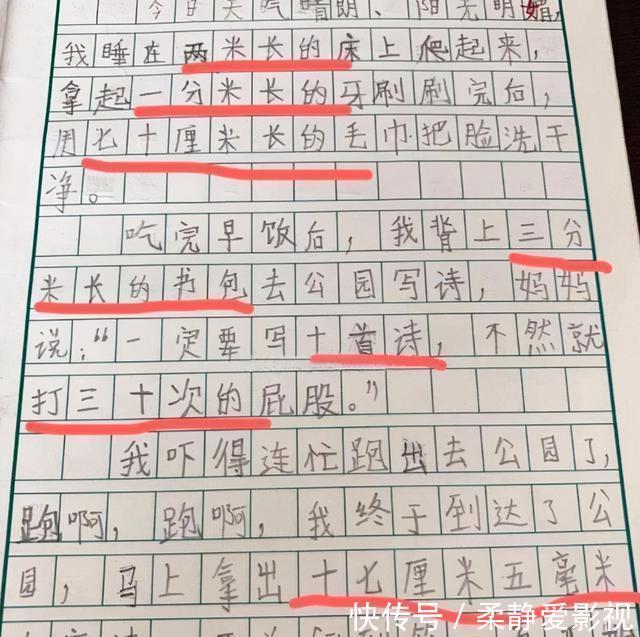 今日天气晴朗、阳光明媚,
我睡在两米长的床上爬起来,
拿起一分米长的牙刷刷完后,
用七十厘米长的毛巾把脸洗干
净。
吃完早饭后,我背上三分
米长的书包去公园写诗,妈妈
说:“一定要写十首诗,不然就
打三十次的屁股。”
我吓得连忙跑出去公园了,
跑啊,跑啊,我终于到达了公
园,马上拿出十七厘米五毫米
快传号/柔静爱影视